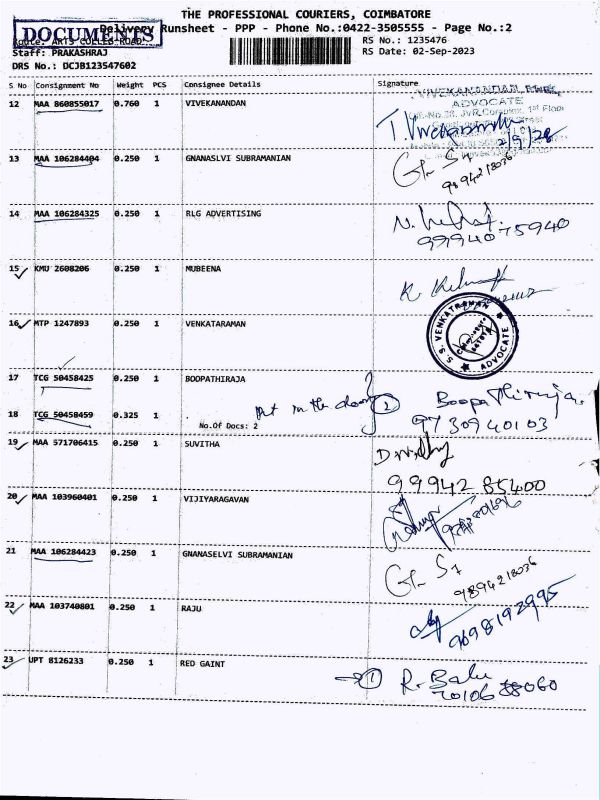 THE PROFESSIONAL COURIERS, COIMBATORE
DOCUMENTS
Delivery Runsheet - PPP - Phone No.:0422-3505555 - Page No.:2
Route: ARTS COLLEG ROAD
RS No.: 1235476
Staff: PRAKASHRAJ
RS Date: 02-Sep-2023
DRS No.: DCJB123547602
S No Consignment No Weight PCS Consignee Details Signature
12 MAA 860855017 0.760 1 VIVEKANANDAN
ADVOCATE
2/9/23
13 MAA 106284404 0.250 1 GNANASLVI SUBRAMANIAN
9894218036
14 MAA 106284325 0.250 1 RLG ADVERTISING
9994075940
15 KMU 2608206 0.250 1 MUBEENA
16 MTP 1247893 0.250 1 VENKATARAMAN
S.S. VENKATRAMAN
ADVOCATE
17 TCG 50458425 0.250 1 BOOPATHIRAJA
Put in the door 2 Boopathiraja
18 TCG 50458459 0.325 1
No.Of Docs: 2
9730940103
19 MAA 571706415 0.250 1 SUVITHA
99942 85400
20 MAA 103960401 0.250 1 VIJIYARAGAVAN
21 MAA 106284423 0.250 1 GNANASELVI SUBRAMANIAN
9894218036
22 MAA 103740801 0.250 1 RAJU
9698192995
23 UPT 8126233 0.250 1 RED GAINT
1 R. Balu